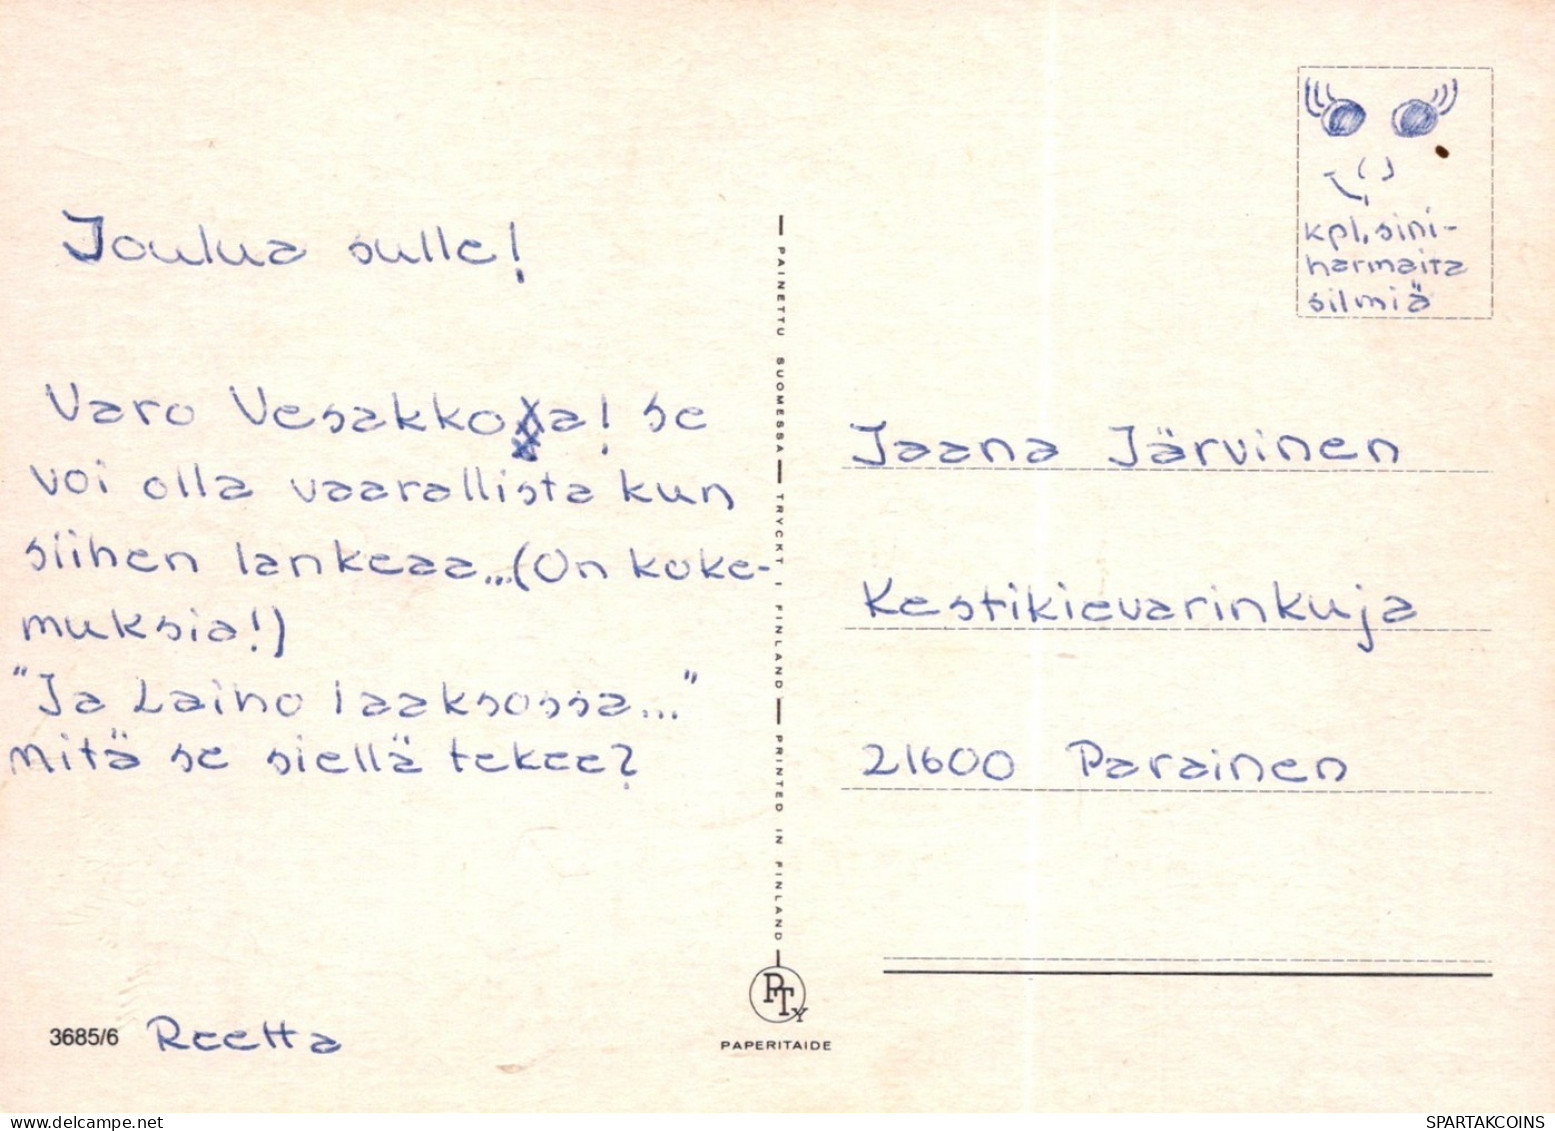 Joulua sulle!
Varo Vesakkoa! se
voi olla vaarallista kun
siihen lankeaa...(On koke-
muksia!)
"Ja Laiho laaksossa..."
Mitä se siellä tekee?
3685/6 Reetta
PAINETTU SUOMESSA — TRYCKT I FINLAND — PRINTED IN FINLAND
PTY
PAPERITAIDE
kpl. sini-
harmaita
silmiä
Jaana Järvinen
Kestikievarinkuja
21600 Parainen
delcampe.net
SPARTAKCOINS